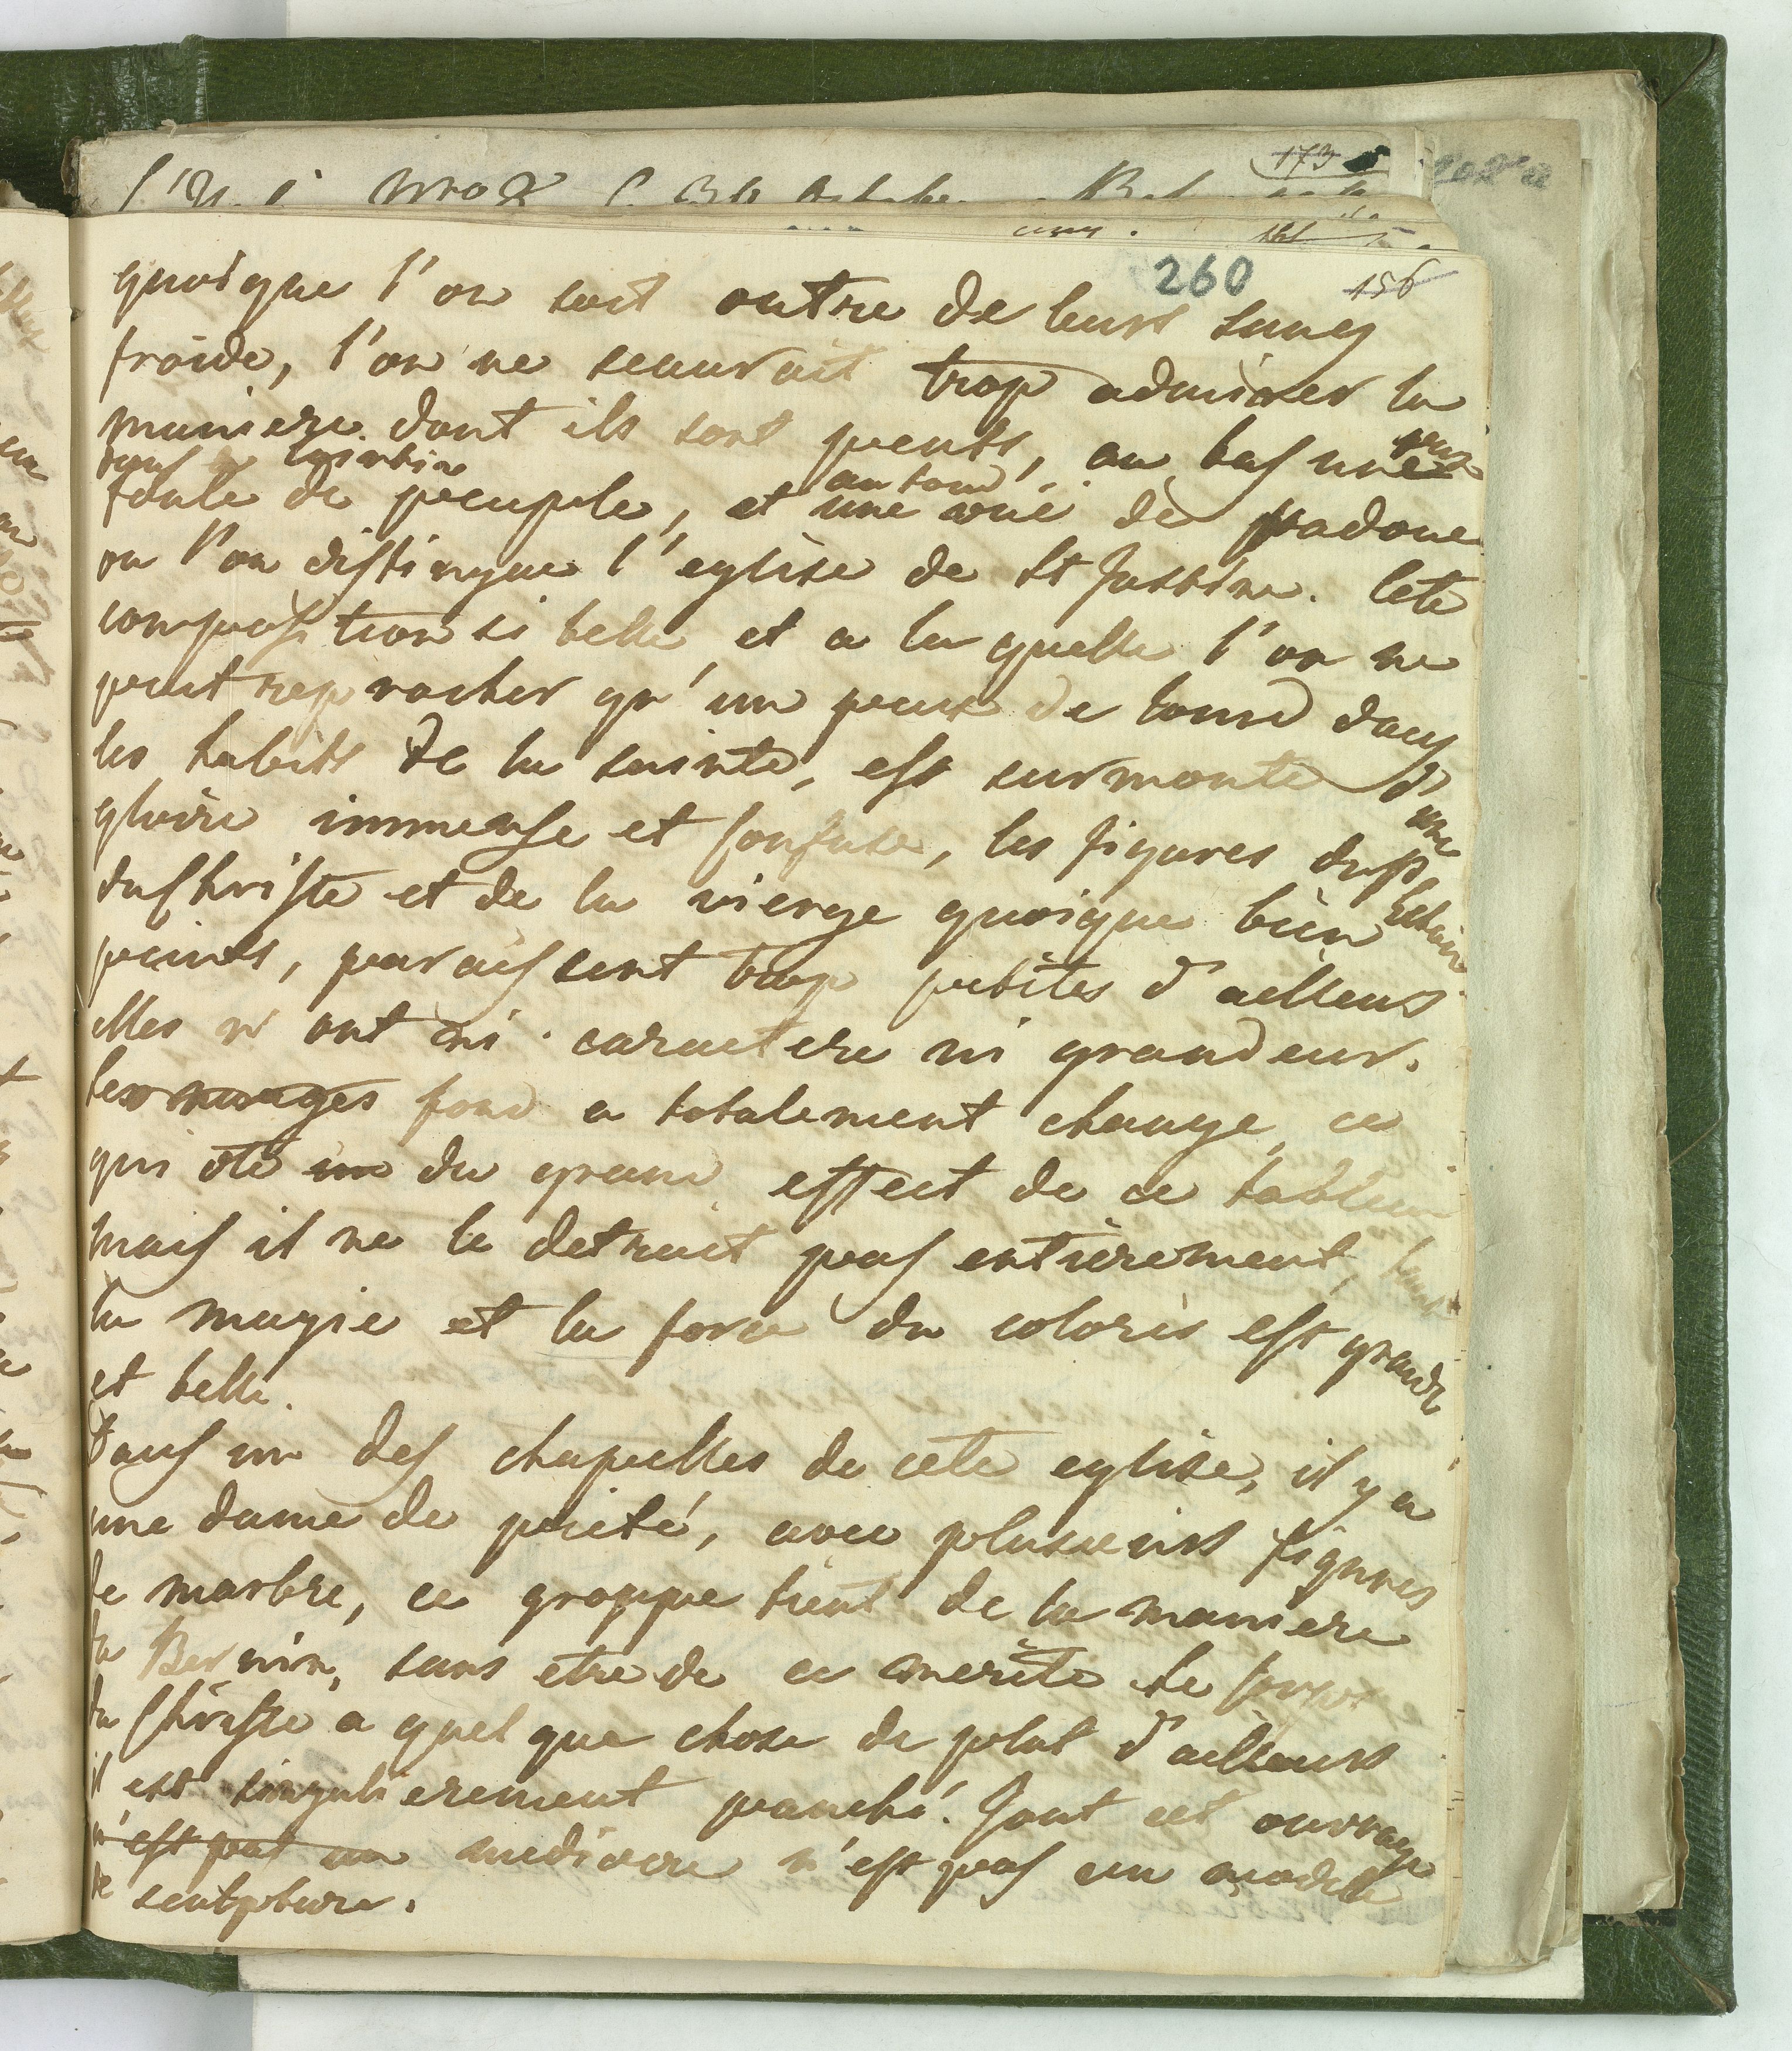 260
156
quoique l'on soit outre de leurs sang
froide, l'on ne scauroit trop admirer la
maniere dont ils sont peints, au bas une
foule de peuple, et une vuë de padoue
ou l'on distingue l'eglise de St Justine. Cete
composition si belle et a la quelle l'on ne
peut reprocher qu'un peux de lourd dans
les habits de la sainte, est surmonte d'une
gloire immense et confuse, les figures du p
du Christe et de la vierge quoique bien
peints, paraissent trop petites d'ailleurs
elles n'ont ni caractere ni grandeur.
les nuages fond a totalement change, ce
qui ote un du grand effect de ce tableau
mais il ne le detruit pas entierement, tant
la magie et la force du coloris est grande
et belle.
Dans un des chapelles de cete eglise, il y a
une dame de pieté, avec plusieurs figures
de marbre, ce grouppe tient de la maniere
du Bernin, sans etre de ce merite le corps
du Christe a quel que chose de plat d'ailleurs
il est singulierement panché. Tout cet ouvrage
n'est pas un mediocre n'est pas un modelle
de sculpture.